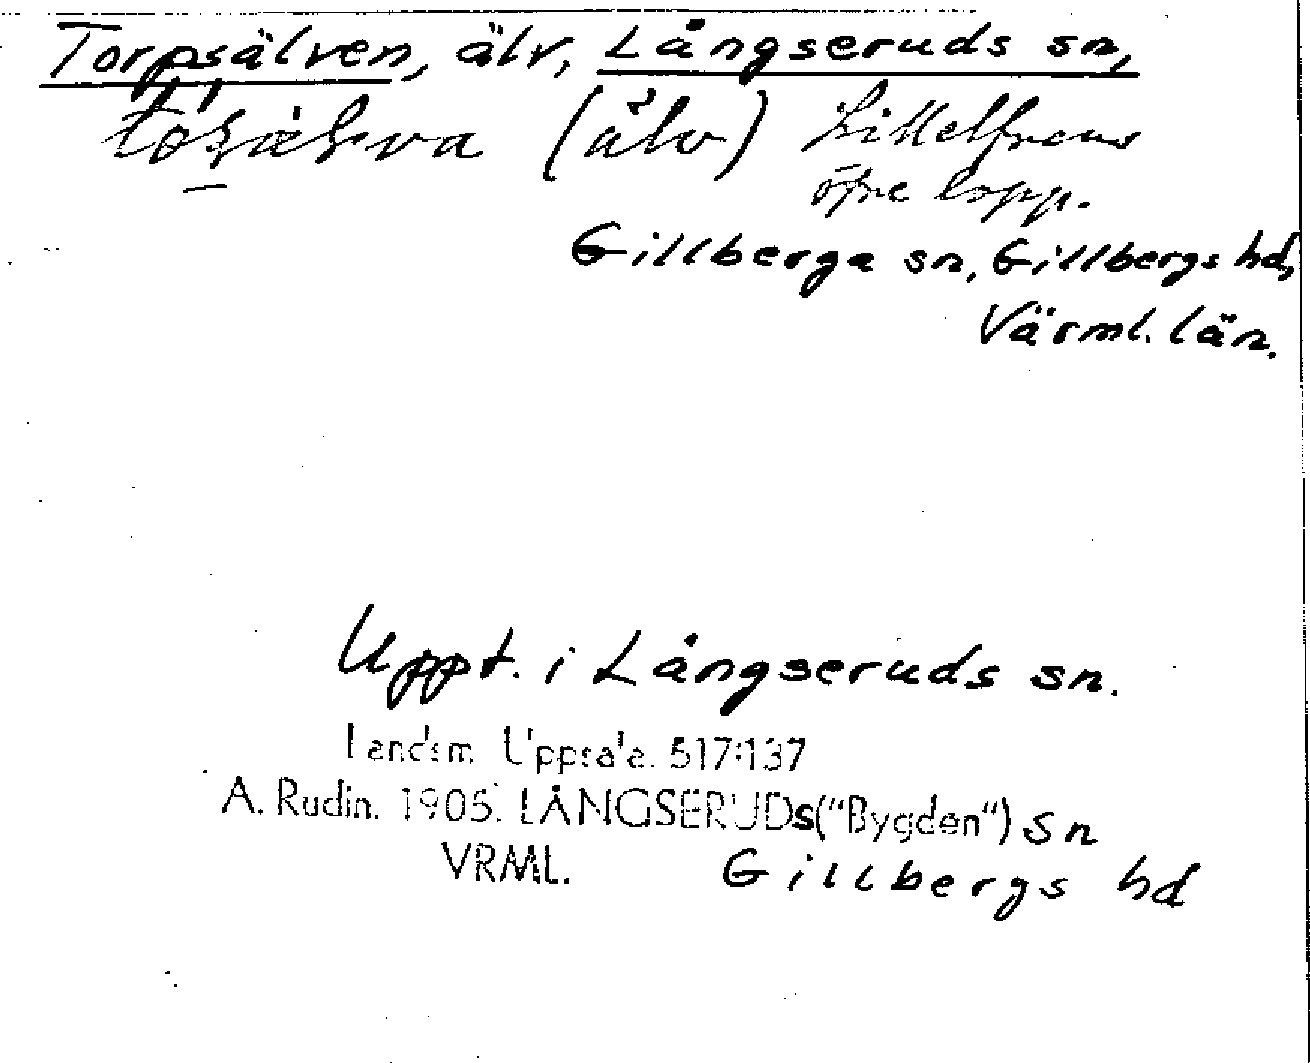 Torpsälven, älv, Långseruds sn,
(älv) Lillelfvens
öfre lopp.
Gillberga sn, Gillbergs hd,
Värml. län.
Uppt. i Långseruds sn.
Landsm. Uppsala. 517:137
A. Rudin. 1905. LÅNGSERUDs("Bygden") sn
VRML. Gillbergs hd